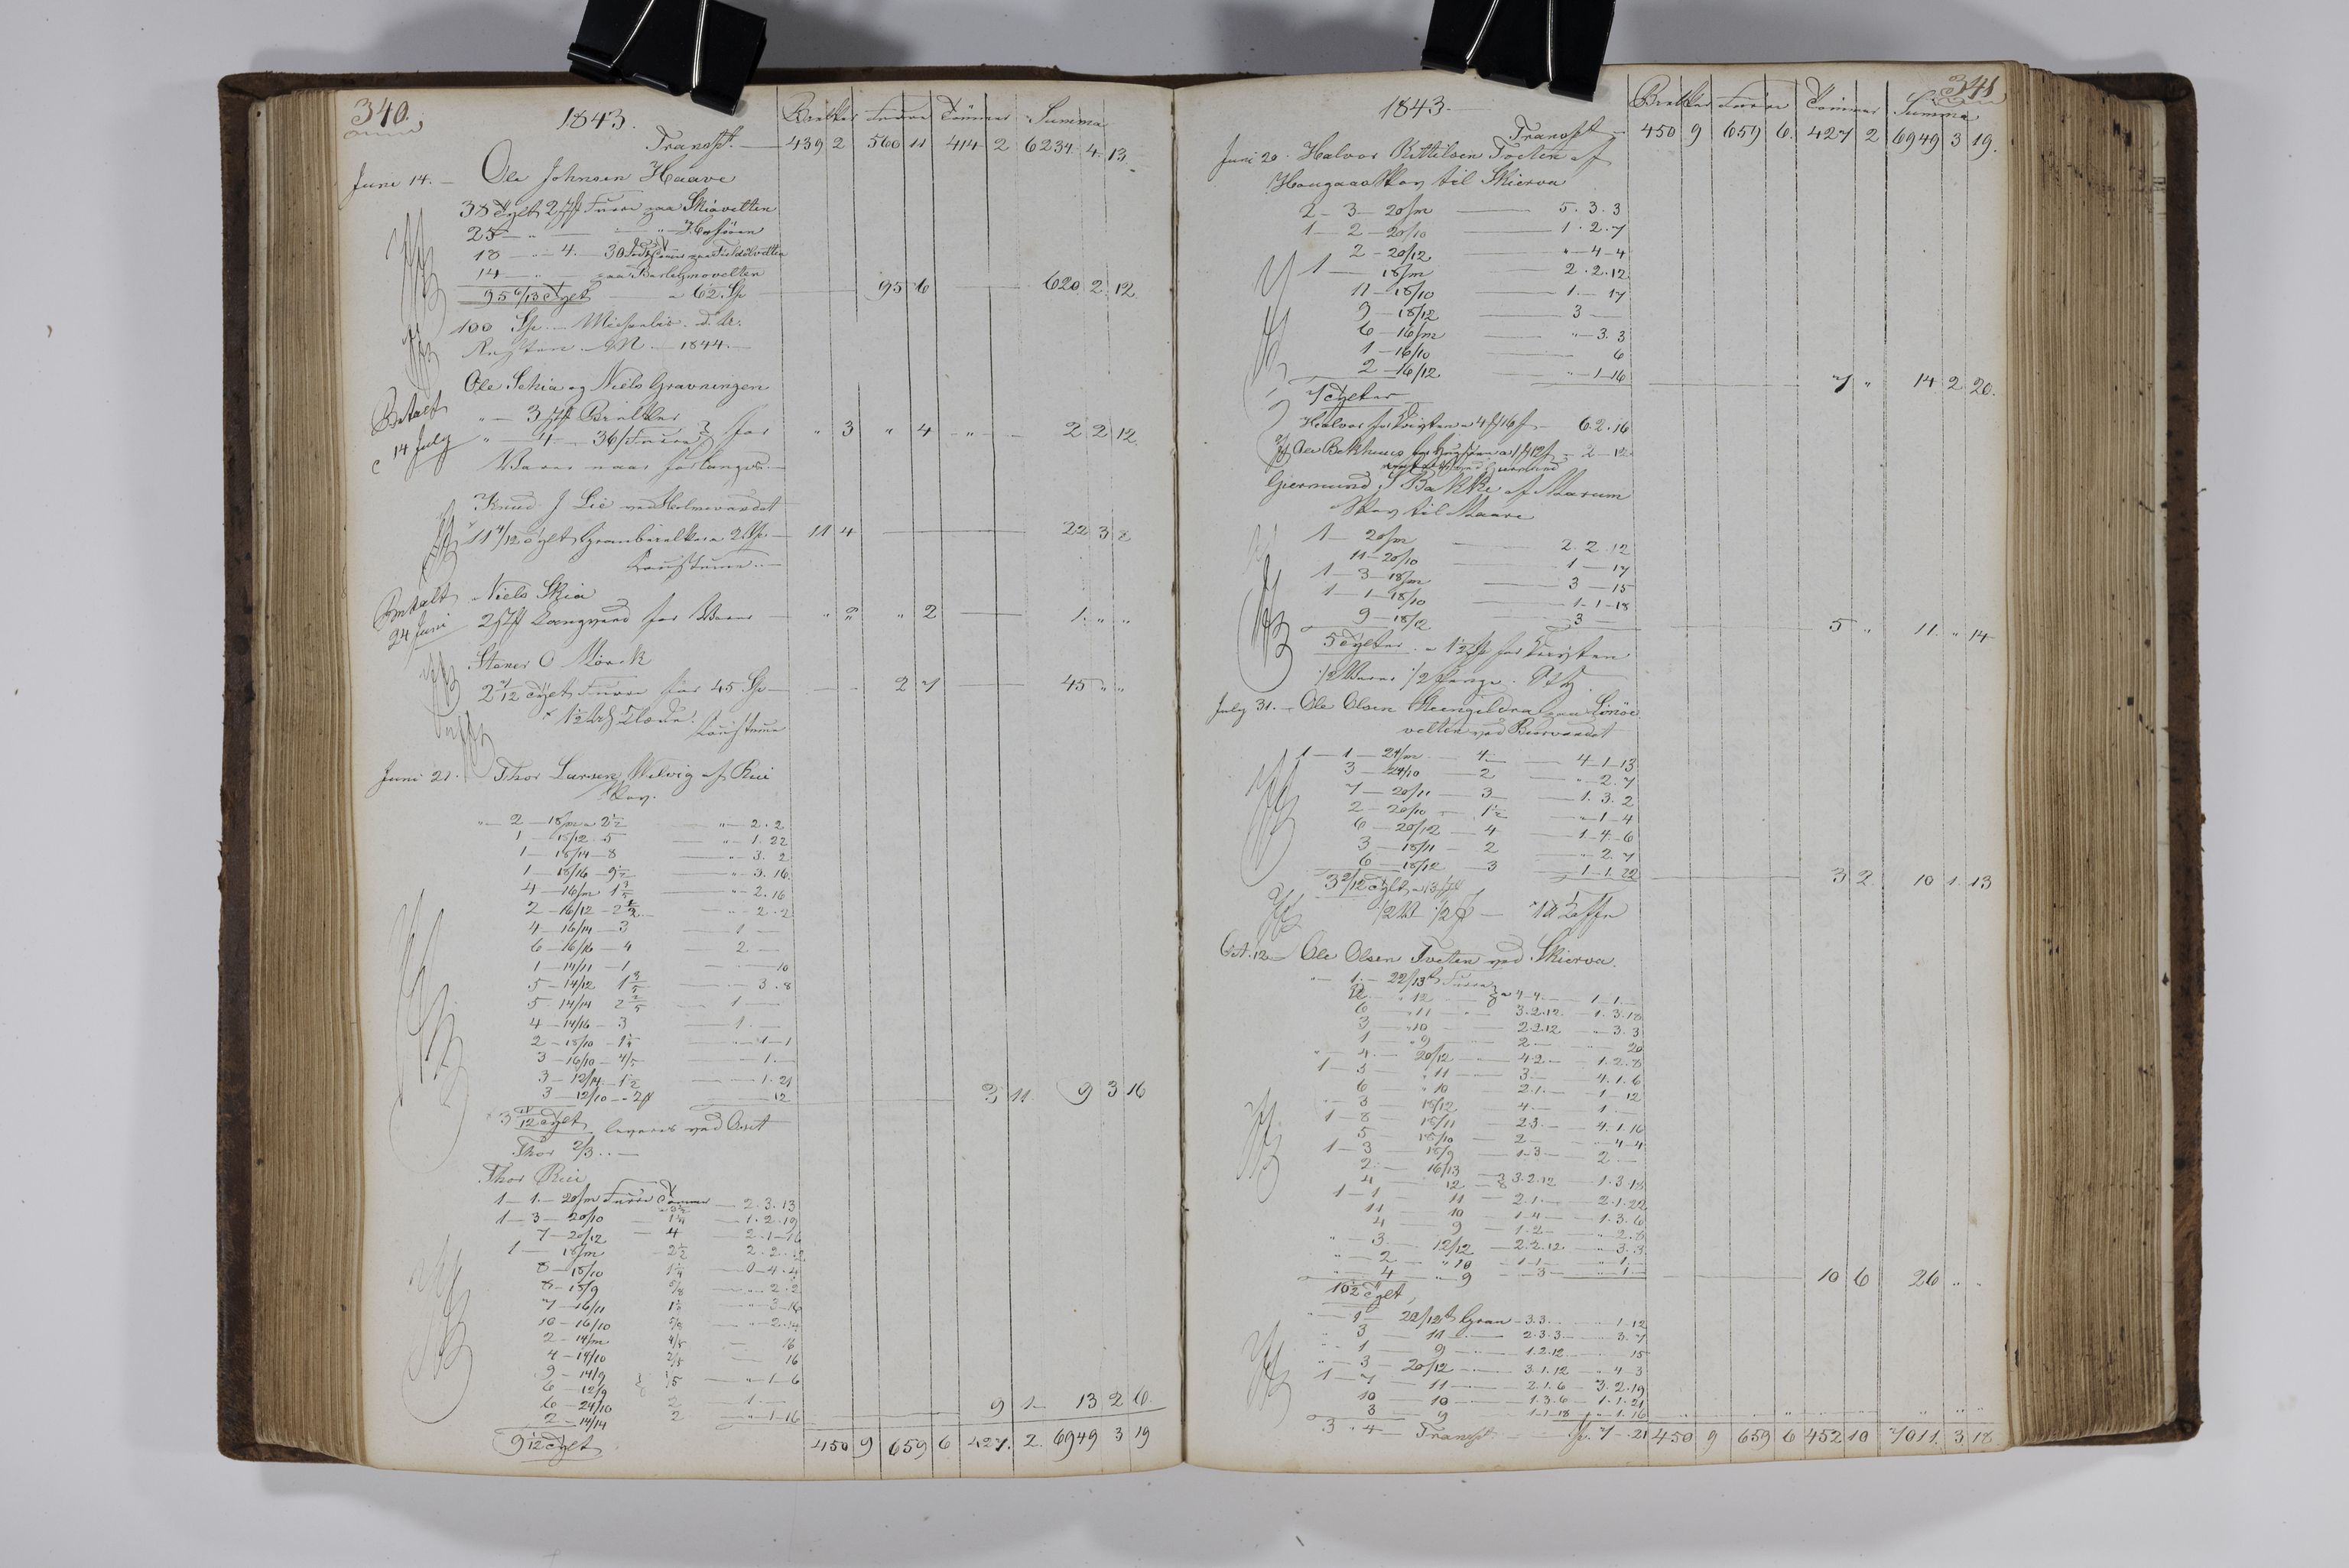 340.
1843.
Bielker Furre Tömmer Summa
Transpt. — 439 2 560 11 414 2 6234. 4. 13.
Juni 14. — Ole Johnsen Haave
38 Tylt 2 Furre paa Skiävelten
25 — " —
18 — " 4. — 30
14 — " — paa
95 6/13 Tylt — a 62 Sp — 95 6 — 620 2 12.
100 Sp. — Michaelis d. A.
Resten — 1844. —
Ole Schia og Niels Gravningen
Betalt " — 3 Bielker
14 July " — 4 — 36/ Furre for " 3 " 4 — " — 2 2 12.
Varer naar forlanges. —
Knud J Lie ved Holmevandet
11 4/12 Tylt Granbielker a 2 Sp — 11 4 — 22 3 8
Betalt Niels Skia
24 Juni 2 Langved for Varer — " " " 2 — 1. " "
Stener O Mörck
2 7/12 Tylt Furre for 45 Sp — — 2 7 — 45 " "
1½ Klæde.
Juni 21. Thor Larsen Velvig af Rui
Skov.
" — 2 — 18/m a 2½ — " — 2. 2
1 — 18/12 5 — " — 1. 22
1 — 18/14 — 8 — " — 3. 2
1 — 18/16 — 9½ — " — 3. 16.
4 — 16/m 1 3/5 — " — 2. 16
2 — 16/12 — 2½ — " — 2. 2
4 — 16/14 — 3 — 1 —
6 — 16/16 — 4 — 2. —
1 — 14/11 — 1 — 10
5 — 14/12 1 3/5 — 3. 8
5 14/14 2 2/5 — 1 —
4 — 14/16 — 3 — 1. —
2 — 18/10 — 1¼ — " — 1 — 1
3 — 16/10 — 4/5 — 1. —
3 — 12/14 — 1½ — 1. 21
3 — 12/10 — — 12 3 11. 9 3 16
3 11/12 Tylt leveres ved
Thor 2/3. . —
Thor Rui
1 — 1. — 20/m Furre Tömmer — 2. 3. 13
1 — 3 — 20/10 — 1¼ — 1. 2. 19
7 — 20/12 — 4 — 2 — 1 — 16
1 — 18/m 2½ 2. 2. 12
8 — 18/10 1¼ — 0 — 4. 4
8 — 18/9 5/8 — " — 2. 2
7 — 16/11 1½ " — 3 — 16
10 — 16/10 — " — 2. 14
2 — 14/m 4/5 — 16
4 — 14/10 2/5 — 16
9 — 14/9
6 — 12/9 1/5 — " — 1 — 6
6 — 24/10 2 — 1. —
2 — 14/14 2 — " — 1 — 16 9 1 — 13 2 6.
9 1/12 Tylt 450 9 659 6 427. 2. 6949 3 19
341
1843. —
Bielker Furre Tömmer Summa
Transpt — 450 9 659 6. 427 2 6949 3 19.
Juni 20. Halvor Kittilsen Tveten af
Skov til Skierva
2 — 3 — 20/m — 5. 3. 3
1 — 2 — 20/10 — 1. 2. 7
2 — 20/12 " — 4 — 4
1 — 18/m 2. 2. 12
11 — 18/10 — 1. — 17
9 — 18/12 — 3 —
6 — 16/m — " — 3. 3
1 — 16/10 — 6
2 — 16/12 — " — 1 — 16
7 Tylter — 7 " 14 2 20.
Halvor for Kiörsten — 6. 2. 16
Ole Bekkhuus — 2 — 12
Giermund J Bakke af Maarum
Skov til Maare
1 — 20/m — 2. 2. 12
11 — 20/10 — 1 — 17
1 — 3 — 18/m — 3 — 15
1 — 1 — 18/10 — 1 — 1 — 18
9 — 18/12 — 3 — 5 " 11. " 14
5 Tylter. a 1½ Sp for Kiörsten
1/2 Varer 1/2 Penge.
July 31. — Ole Olsen paa
velten ved
1 — 1 — 24/m — 4 — 4 — 1 — 13
3 — 24/10 — 2 — " — 2. 7
7 — 20/11 — 3 — 1. 3. 2
2 — 20/10 — 1½ — " — 1 — 4
6 — 20/12 — 4 — 1 — 4. — 6
3 — 18/11 — 2 — " 2. 7
6 — 18/12 — 3 — 1 — 1. 22
3 2/12 Tylt 3 2. 10 1. 13
1/2 V. 1/2 P — Kaffe
Oct. 12 — Ole Olsen Tveten ved Skierva.
" — 1. — 22/13 Furre
2 — " 12 — a 4 — 4. — 1 — 1. —
6 — " 11 — 3. 2. 12. — 1. 3. 18
3 " 10 — 2. 2. 12 — " 3. 3
1 — " 9 — 2 — 20
" 4. — 20/12 — 4. 2 — 1. 2. 8
1 — 3 — " 11 — 3. — 4. 1. 6
6 — " 10 — 2. 1. — 1 — 12
3 — 18/12 — 4. — 1. —
1 — 8 — 18/11 — 2 3. — 4. 1. 16
5 — 18/10 — 2 — " 4 — 4
1 — 3 — 18/9 — 1 — 3 — 2 —
2. — 16/13
4 — 12 — 3. 2. 12 — 1. 3. 18
1 — 1 — 11 — 2. 1. — 2. 1. 22
11 — 10 — 1. 4 — 1. 3. 6
4 — 9 — 1. 2 — " 2. 8
" — 3. — 12/12 — 2. 2. 12. — " 3. 3
" — 2 — " 10 — 1 — 1 — " 1. —
" 4 — " 9 — 3 — " 1. — 10 6 26 " "
10½ Tylt
" — 1 — 22/12 Gran — 3. 3. — " 1. 12
3 — 11 — 2. 3. 3 — 3. 7
" 1 — 9 — 1. 2. 12 — 15
" — 3 — 20/12 — 3. 1. 12 — " 4 3
1 — 7 — 11 — 2. 1. 6 — 3. 2. 19
10 — 10 — 1. 3. 6 — 1. 1. 21
3 — 9 — 1 — 1 — 18 — " 1. 16
3. 4 — Transpt — Sp. 7 — 21 450 9 659 6 452 10 7011. 3 18